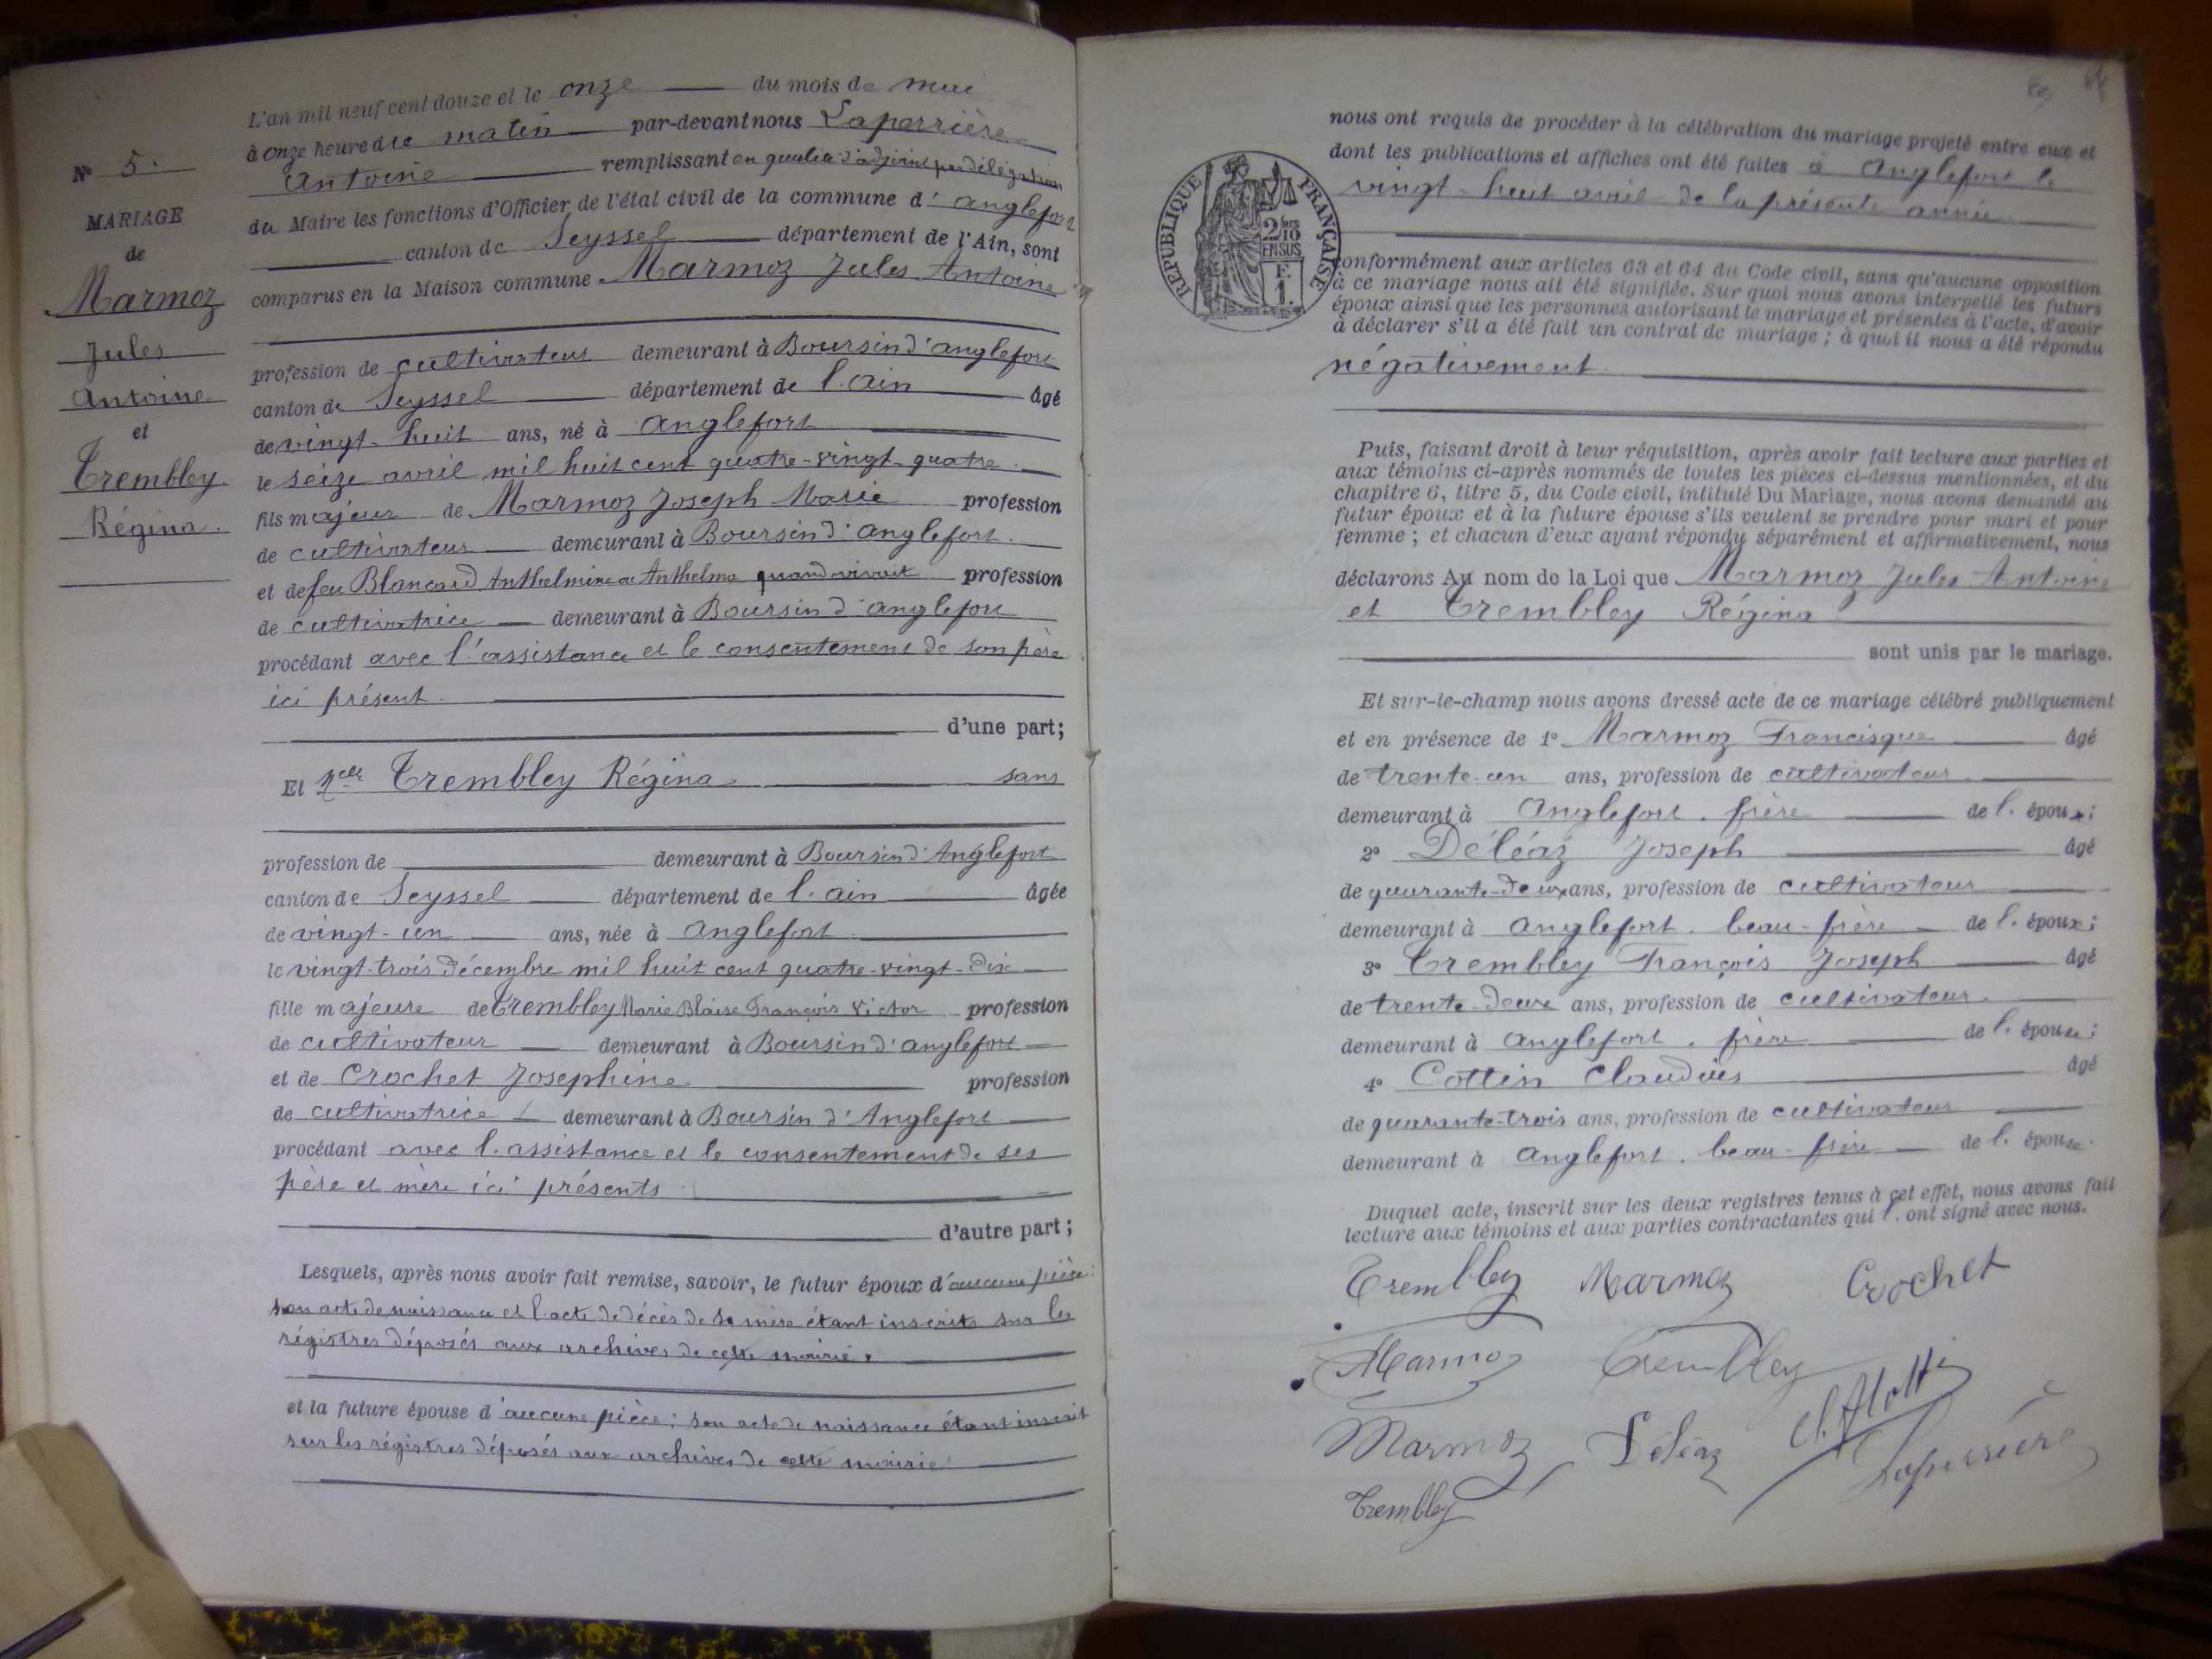 N° 5.
MARIAGE
de
Marmoz
Jules
Antoine
et
Trembley
Régina.
L'an mil neuf cent douze et le onze du mois de mai
à onze heure du matin par-devant nous Laperrière
Antoine remplissant en qualité d'adjoint par délégation
du Maire les fonctions d'Officier de l'état civil de la commune d'anglefort
canton de Seyssel département de l'Ain, sont
comparus en la Maison commune Marmoz Jules Antoine
profession de cultivateur demeurant à Boursin d'anglefort
canton de Seyssel département de l'ain âgé
de vingt-huit ans, né à anglefort
le seize avril mil huit cent quatre-vingt-quatre.
fils majeur de Marmoz Joseph Marie profession
de cultivateur demeurant à Boursin d'anglefort.
et de feu Blancard Anthelmine ou Anthelma quand vivait profession
de cultivatrice demeurant à Boursin d'anglefort
procédant avec l'assistance et le consentement de son père
ici présent.
d'une part;
Et Melle Trembley Régina sans
profession de demeurant à Boursin d'Anglefort
canton de Seyssel département de l'ain âgée
de vingt-un ans, née à anglefort.
le vingt-trois décembre mil huit cent quatre-vingt-dix
fille majeure de Trembley Marie Blaise François Victor profession
de cultivateur demeurant à Boursin d'anglefort
et de Crochet Josephine profession
de cultivatrice demeurant à Boursin d'Anglefort
procédant avec l'assistance et le consentement de ses
père et mère ici présents.
d'autre part;
Lesquels, après nous avoir fait remise, savoir, le futur époux d'aucune pièce:
son acte de naissance et l'acte de décès de sa mère étant inscrits sur les
régistres déposés aux archives de cette mairie.
et la future épouse d'aucune pièce: son acte de naissance étant inscrit
sur les régistres déposés aux archives de cette mairie
nous ont requis de procéder à la célébration du mariage projeté entre eux et
dont les publications et affiches ont été faites à Anglefort le
vingt-huit avril de la présente année
REPUBLIQUE FRANÇAISE
2/10 EN SUS
F. 1.
conformément aux articles 63 et 64 du Code civil, sans qu'aucune opposition
à ce mariage nous ait été signifiée. Sur quoi nous avons interpellé les futurs
époux ainsi que les personnes autorisant le mariage et présentes à l'acte, d'avoir
à déclarer s'il a été fait un contrat de mariage; à quoi il nous a été répondu
négativement.
Puis, faisant droit à leur réquisition, après avoir fait lecture aux parties et
aux témoins ci-après nommés de toutes les pièces ci-dessus mentionnées, et du
chapitre 6, titre 5, du Code civil, intitulé Du Mariage, nous avons demandé au
futur époux et à la future épouse s'ils veulent se prendre pour mari et pour
femme; et chacun d'eux ayant répondu séparément et affirmativement, nous
déclarons Au nom de la Loi que Marmoz Jules Antoine
et Trembley Régina
sont unis par le mariage.
Et sur-le-champ nous avons dressé acte de ce mariage célébré publiquement
et en présence de 1° Marmoz Francisque âgé
de trente-un ans, profession de cultivateur
demeurant à Anglefort. frère de l'époux;
2° Déléaz Joseph âgé
de quarante-deux ans, profession de cultivateur
demeurant à anglefort. beau-frère de l'époux;
3° Trembley François Joseph âgé
de trente-deux ans, profession de cultivateur.
demeurant à anglefort. frère de l'épouse;
4° Cottin Claudius âgé
de quarante-trois ans, profession de cultivateur
demeurant à anglefort. beau-frère de l'épouse.
Duquel acte, inscrit sur les deux registres tenus à cet effet, nous avons fait
lecture aux témoins et aux parties contractantes qui l'ont signé avec nous.
Trembley Marmoz Crochet
Marmoz Trembley
Marmoz Déléaz Laperrière
Trembley